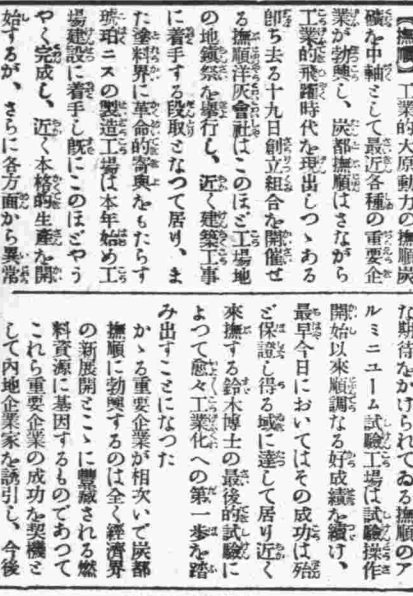 【撫順】工業的大原動力の撫順炭
礦を中軸として最近各種の重要企
業が勃興し、炭都撫順はさながら
工業的飛躍時代を現出しつゝある
卽ち去る十九日創立組合を開催せ
る撫順洋灰會社はこのほど工場地
の地鎭祭を擧行し、近く建築工事
に着手する段取となつて居り、ま
た塗料界に革命的寄與をもたらす
琥珀ニスの製造工場は本年始め工
場建設に着手し既にこのほどやう
やく完成し、近く本格的生產を開
始するが、さらに各方面から異常
な期待をかけられてゐる撫順のア
ルミニユーム試驗工場は試驗操作
開始以來順調なる好成績を續け、
最早今日においてはその成功は殆
ど保證し得る域に達して居り近く
來撫する鈴木博士の最後的試驗に
よつて愈々工業化への第一步を踏
み出すことになつた
かゝる重要企業が相次いで炭都
撫順に勃興するのは全く經濟界
の新展開とこゝに豐藏される燃
料資源に基因するものであつて
これら重要企業の成功を契機と
して內地企業家を誘引し、今後